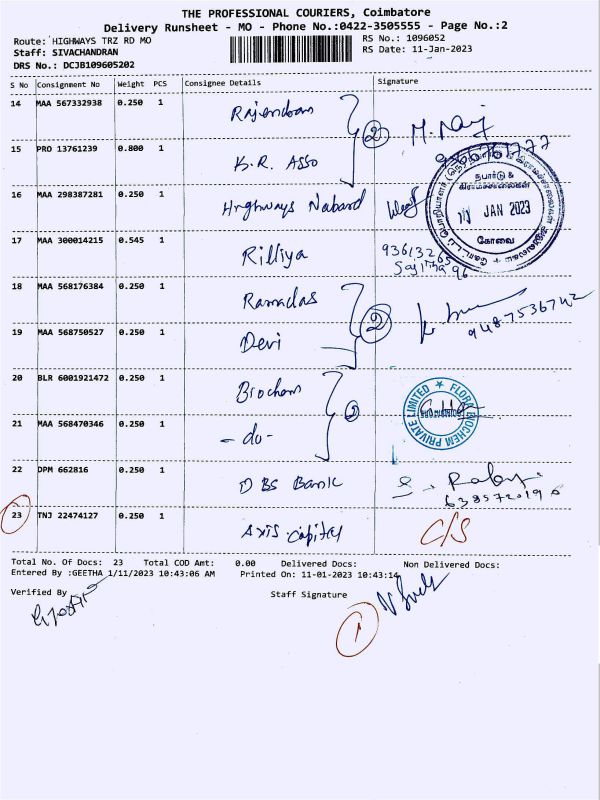 THE PROFESSIONAL COURIERS, Coimbatore
Delivery Runsheet - MO - Phone No.:0422-3505555 - Page No.:2
Route: HIGHWAYS TRZ RD MO
RS No.: 1096052
Staff: SIVACHANDRAN
RS Date: 11-Jan-2023
DRS No.: DCJB109605202
S No Consignment No Weight PCS Consignee Details Signature
14 MAA 567332938 0.250 1 Rajendran M. Raj
2
15 PRO 13761239 0.800 1 K.R. Asso
16 MAA 298387281 0.250 1 Highways Nabard
நபார்டு &
கிராமச்சாலைகள்
11 JAN 2023
கோவை
17 MAA 300014215 0.545 1 Rilliya
18 MAA 568176384 0.250 1 Ramadas
2
9487536742
19 MAA 568750527 0.250 1 Devi
20 BLR 6001921472 0.250 1 Biochem
FLORA BIOCHEM PRIVATE LIMITED
21 MAA 568470346 0.250 1 - do -
22 DPM 662816 0.250 1 DBS Bank
23 TNJ 22474127 0.250 1 Axis Capital C/S
Total No. Of Docs: 23 Total COD Amt: 0.00 Delivered Docs: Non Delivered Docs:
Entered By :GEETHA 1/11/2023 10:43:06 AM Printed On: 11-01-2023 10:43:14
Verified By
Staff Signature
1